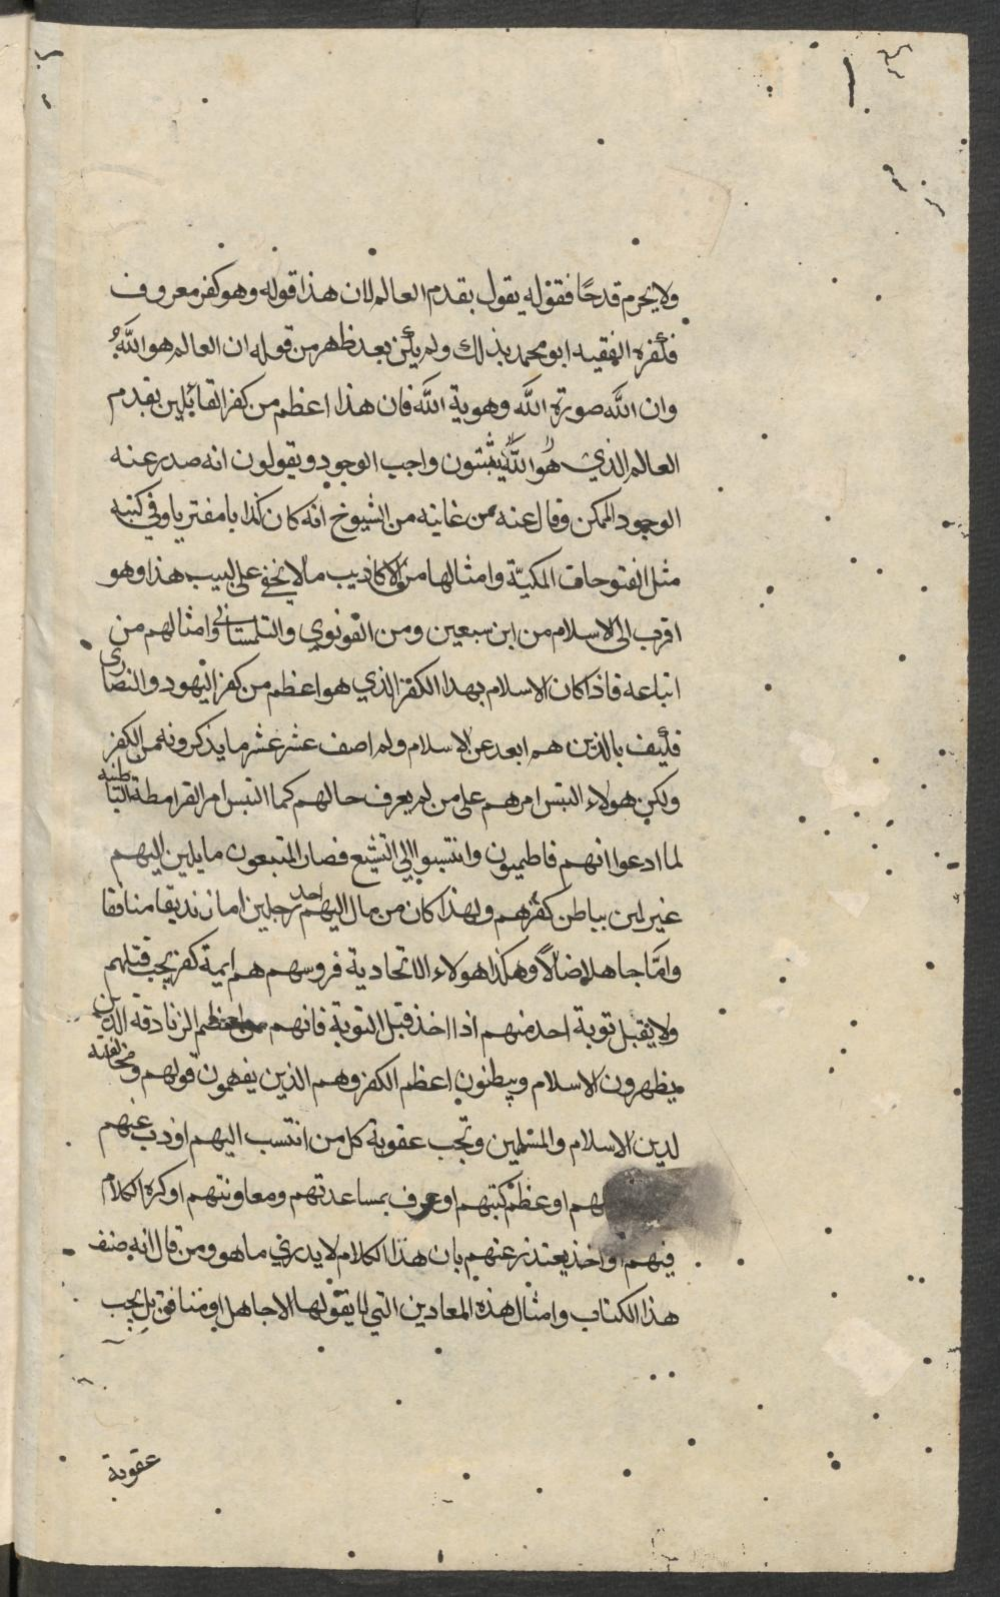 ولا يحرم قدحًا فقوله يقول بقدم العالم لان هذا قوله وهو كفر معروف
فكفره الفقيه ابو محمد بذلك ولم يكن بعد ظهر من قوله ان العالم هو الله
وان الله صورة الله وهوية الله فان هذا اعظم من كفر القائلين بقدم
العالم الذي هو الله يثبتون واجب الوجود ويقولون انه صدر عنه
الوجود الممكن وقال عنه من عاينه من الشيوخ انه كان كذابا مفتريا وفي كتبه
مثل الفتوحات المكيّة وامثالها من الاكاذيب ما لا يخفى على لبيب هذا وهو
اقرب الى الاسلام من ابن سبعين ومن القونوي والتلمساني وامثالهم من
اتباعه فاذا كان الاسلام بهدا الكفر الذي هو اعظم من كفر اليهود والنصارى
فكيف بالذين هم ابعد عن الاسلام ولم اصف عشر عشر ما يذكرونه من الكفر
ولكن هولاء التبس امرهم على من لم يعرف حالهم كما التبس امر القرامطة الباطنه
لما ادعوا انهم فاطميون وانتسبوا الى التشيع فصار المتبعون مايلين اليهم
غير لين بباطن كفرهم ولهذا كان من مال اليهم احد رجلين اما زنديقا منافقا
وامّا جاهلا ضالاً وهكذا هولاء الاتحادية فروسهم هم ايمة كفر يجب قتلهم
ولا يقبل توبة احد منهم اذا اخذ قبل التوبة فانهم من اعظم الزنادقة الذين
يظهرون الاسلام ويبطنون اعظم الكفر وهم الذين يفهمون قولهم ومخالفته
لدين الاسلام والمسلمين وتجب عقوبة كل من انتسب اليهم او ذب عنهم
او عظم كتبهم او عرف بمساعدتهم ومعاونتهم او كره الكلام
فيهم او اخذ يعتذر عنهم بان هذا الكلام لا يدري ما هو ومن قال انه صنف
هذا الكتاب وامثال هذه المعاذين التي لا يقولها الا جاهل او منافق بل يجب
عقوبة